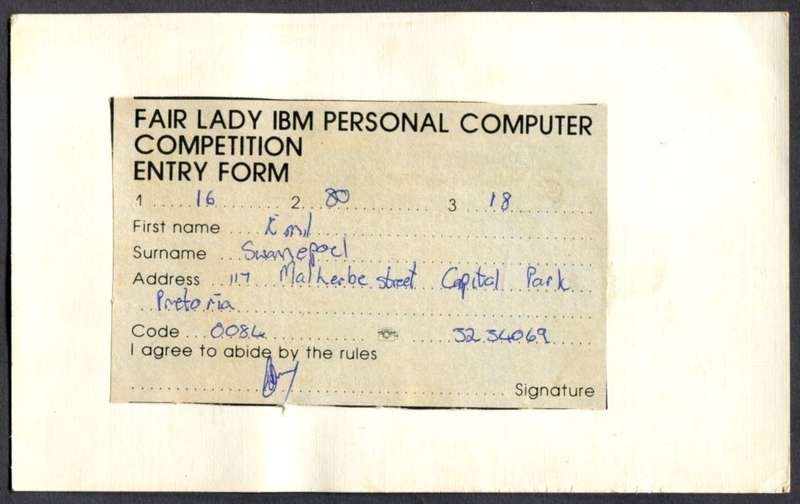 FAIR LADY IBM PERSONAL COMPUTER
COMPETITION
ENTRY FORM
1 16 2 80 3 18
First name Emil
Surname Swanepoel
Address 117 Malherbe street Capital Park
Pretoria
Code 0084 3234069
I agree to abide by the rules
Signature